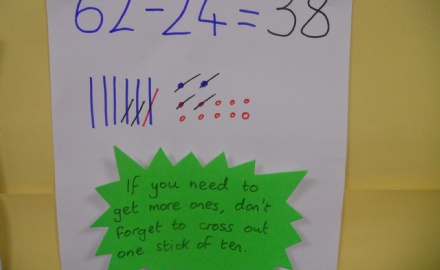 62-24=38
If you need to
get more ones, don't
forget to cross out
one stick of ten.